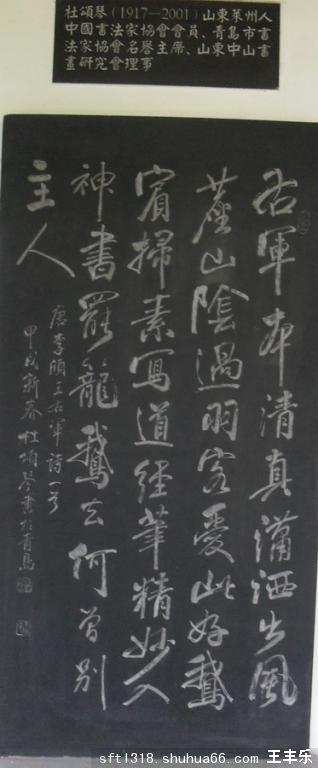 杜頌琴(1917—2001)山東萊州人
中國書法家協會會員、青島市書
法家協會名譽主席、山東中山書
畫研究會理事
右軍本清真瀟洒出風
塵山陰過羽客愛此好鵝
賓掃素寫道經筆精妙入
神書罷籠鵝去何曾別
主人
唐李頎王右軍詩一首
甲戌新春杜頌琴書於青島
sftl318.shuhua66.com 王丰乐